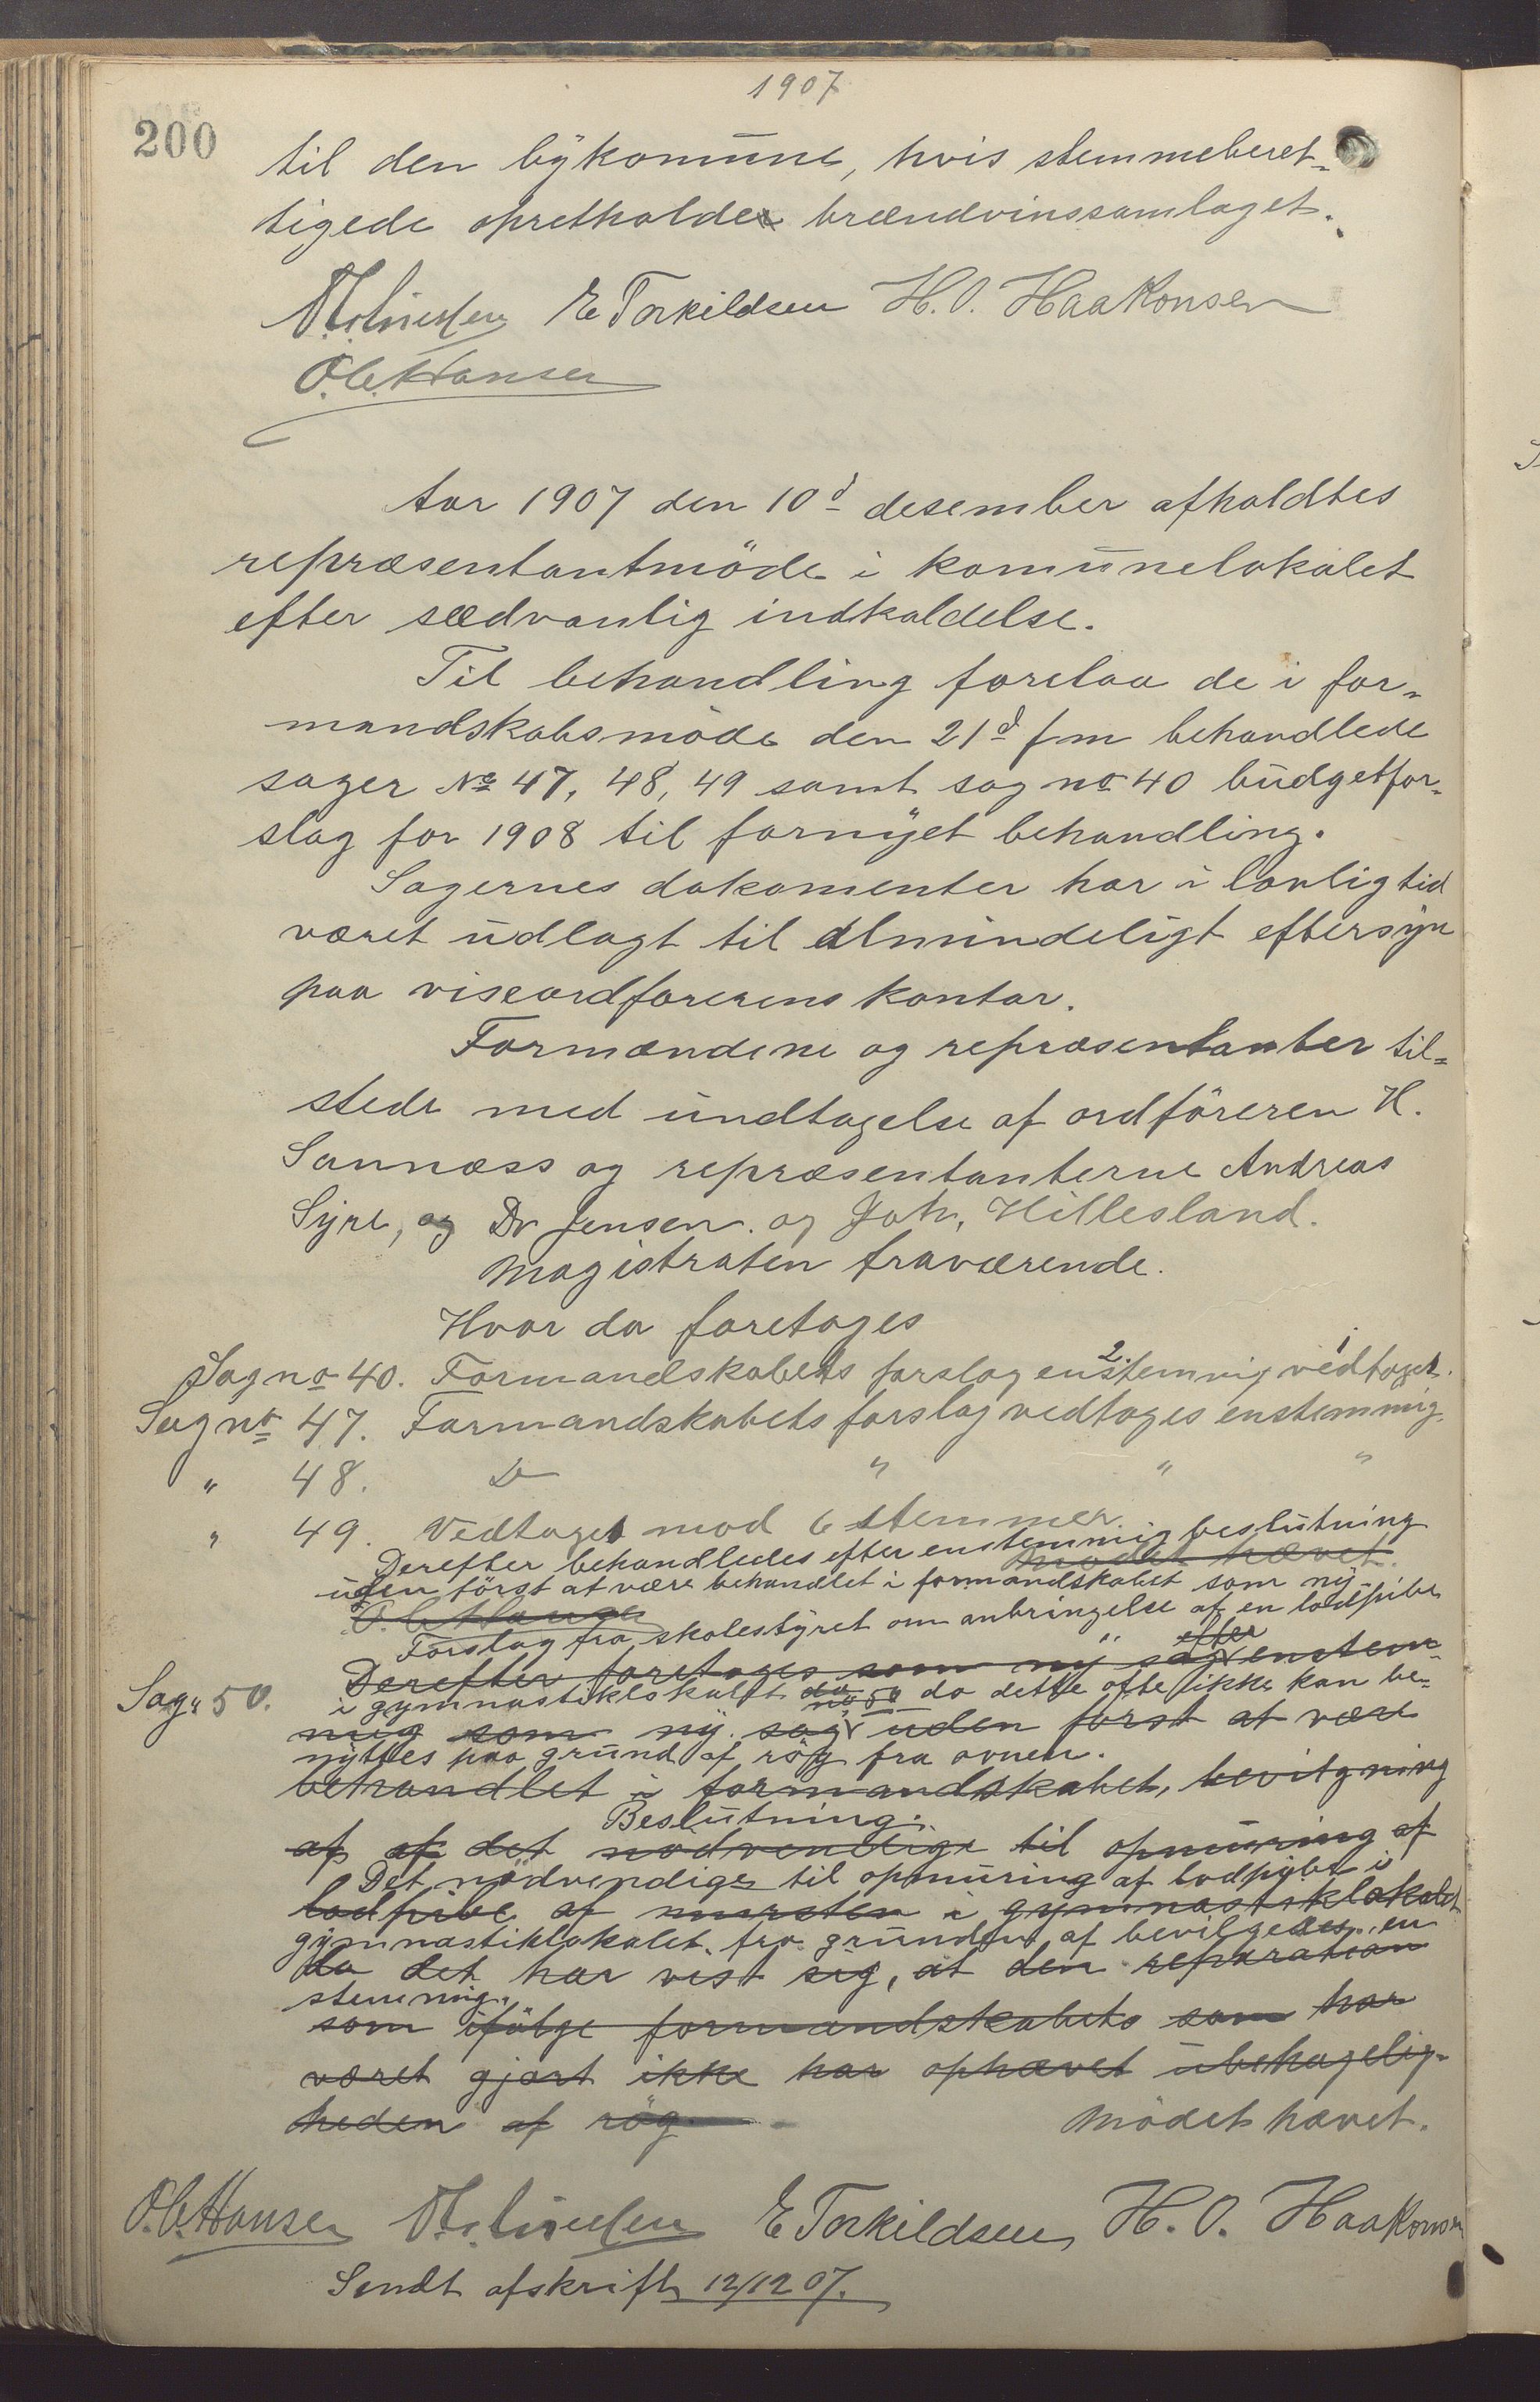 1907
200
til den bykomune, hvis stemmeberet-
tigede opretholder brændvinssamlaget.
E Torkildsen H. O. Haakonsen
O. C. Hansen
Aar 1907 den 10d desember afholdtes
repræsentantmöde i komunelokalet
efter sædvanlig indkaldelse.
Til behandling forelaa de i for-
mandskabsmöde den 21d f m behandlede
sager No 47, 48, 49 samt sag no 40 budgetfor-
slag for 1908 til fornyet behandling.
Sagernes dokomenter har i lovlig tid
været udlagt til almindeligt eftersyn
paa viseordførerens kontor.
Formændene og repræsentanter til-
stede med undtagelse af ordföreren H.
Sannæss og repræsentanterne Andreas
Syre, og Dr Jensen. og Joh. Hillesland.
Magistraten fraværende.
Hvor da foretoges
Sag no 40. Formandskabets forslag enstemmig 2. vedtaget 1.
Sag no 47. Formandskabets forslag vedtoges enstemmig.
" 48. Do " " "
" 49. Vedtaget mod 6 stemmer.
Derefter behandledes efter enstemmig beslutning
Mødet hævet.
uden först at være behandlet i formandskabet som ny
O. C. Hansen
Forslag fra skolestyret om anbringelse af en lodpibe
Derefter foretoges som ny sag efter enstem-
Sag " 50. i gymnastiklokalet da no 50 da dette ofte ikke kan be-
mig som ny sag uden først at være
nyttes paa grund af rög fra ovnen.
behandlet i formandskabet, bevilgning
Beslutning:
af af det nödvendige til opmuring af
Det nödvendige til opmuring af lodpibe i
lodpibe af mursten i gymnastiklokalet
gymnastiklokalet fra grunden af bevilgedes en
da det har vist sig, at den reparation
stemmig.
som ifölge formandskabets som har
været gjort ikke har ophævet ubehagelig-
heden af rög
Mödet hævet.
O. C. Hansen E Torkildsen H. O. Haakonsen
Sendt afskrift 12/12 07.